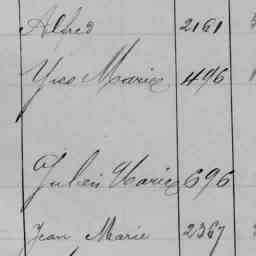 Alfred 2161
Yves Marie 496
Julien Marie 696
Jean Marie 2367